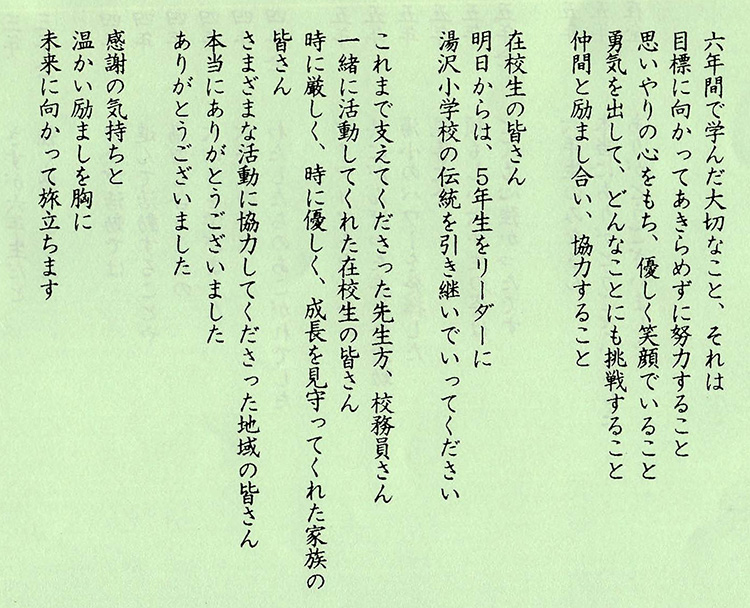 六年間で学んだ大切なこと、それは
目標に向かってあきらめずに努力すること
思いやりの心をもち、優しく笑顔でいること
勇気を出して、どんなことにも挑戦すること
仲間と励まし合い、協力すること
在校生の皆さん
明日からは、５年生をリーダーに
湯沢小学校の伝統を引き継いでいってください
これまで支えてくださった先生方、校務員さん
一緒に活動してくれた在校生の皆さん
時に厳しく、時に優しく、成長を見守ってくれた家族の
皆さん
さまざまな活動に協力してくださった地域の皆さん
本当にありがとうございました
ありがとうございました
感謝の気持ちと
温かい励ましを胸に
未来に向かって旅立ちます